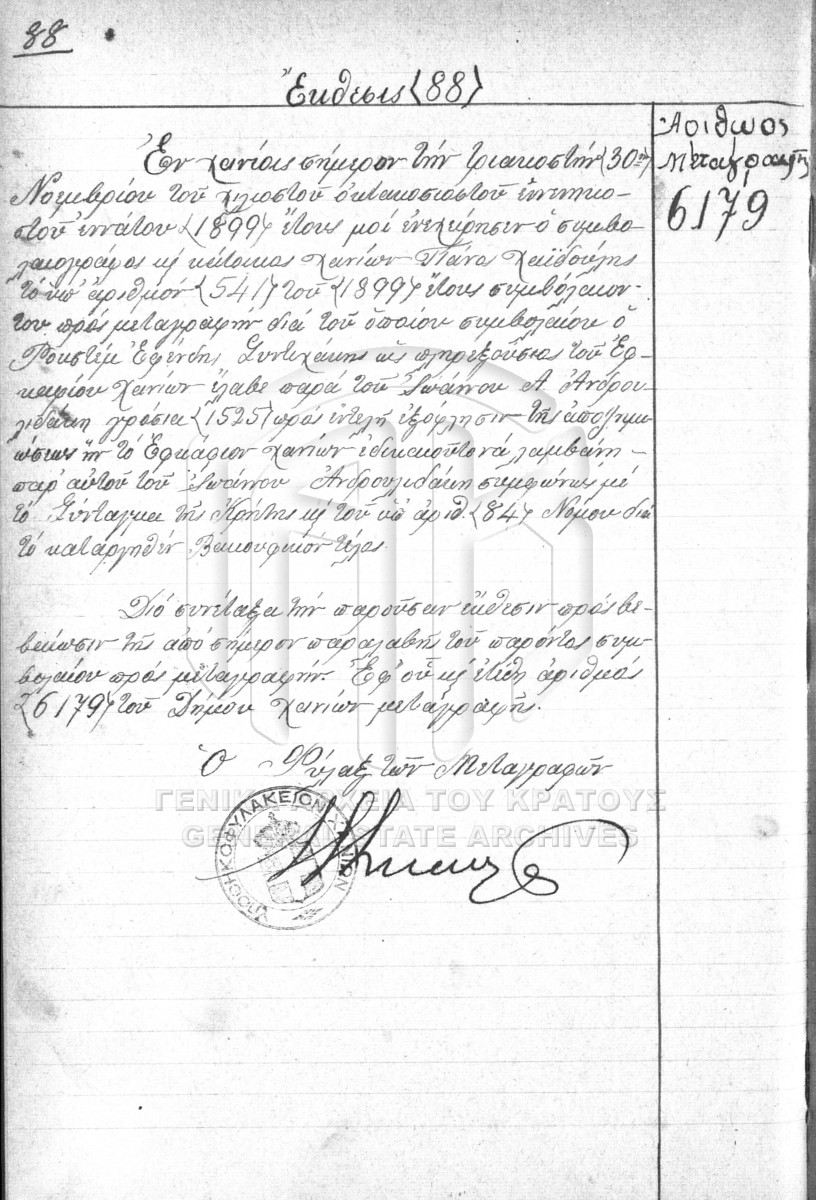 88
Ἔκθεσις (88)
Ἀριθμος
Μεταγραφῆς
6179
Ἐν Χανίοις σήμερον τὴν τριακοστὴν (30ην)
Νοεμβρίου τοῦ χιλιοστοῦ ὀκτακοσιοστοῦ ἐννενηκο-
στοῦ ἐννάτου (1899) ἔτους μοὶ ἐνεχείρησεν ὁ συμβο-
λαιογράφος κ κάτοικος Χανίων Πάνος Χαϊδούλης
τὸ ὑπ' ἀριθμὸν (541) τοῦ (1899) ἔτους συμβόλαιον
του πρὸς μεταγραφὴν διὰ τοῦ ὁποίου συμβολαίου ὁ
Ρουστὲμ Ἐφένδης ὡς πληρεξούσιος τοῦ Ἐφ-
καφίου Χανίων ἔλαβε παρὰ τοῦ Ἰωάννου Α Ἀνδρου-
λιδάκη γρόσια (1525) πρὸς ἐντελῆ ἐξόφλησιν τῆς ἀποζημι-
ώσεως ἣν τὸ Ἐφκάφιον Χανίων ἐδικαιοῦτο νὰ λαμβάνῃ
παρ' αὐτοῦ τοῦ Ἰωάννου Ἀνδρουλιδάκη συμφώνως μὲ
τὸ Σύνταγμα τῆς Κρήτης κ τοῦ ὑπ' ἀριθ. (84) Νόμου διὰ
τὸ καταργηθὲν Βακουφικὸν τέλος.
Διὸ συνέταξα τὴν παροῦσαν ἔκθεσιν πρὸς βε-
βαίωσιν τῆς ἀπὸ σήμερον παραλαβῆς τοῦ παρόντος συμ-
βολαίου πρὸς μεταγραφήν. Ἐφ' οὗ κ ἐτέθη ἀριθμὸς
(6179) τοῦ Δήμου Χανίων μεταγραφῆς.
Ὁ Φύλαξ τῶν Μεταγραφῶν
ΥΠΟΘΗΚΟΦΥΛΑΚΕΙΟΝ ΧΑΝΙΩΝ
ΓΕΝΙΚΑ ΑΡΧΕΙΑ ΤΟΥ ΚΡΑΤΟΥΣ
GENERAL STATE ARCHIVES